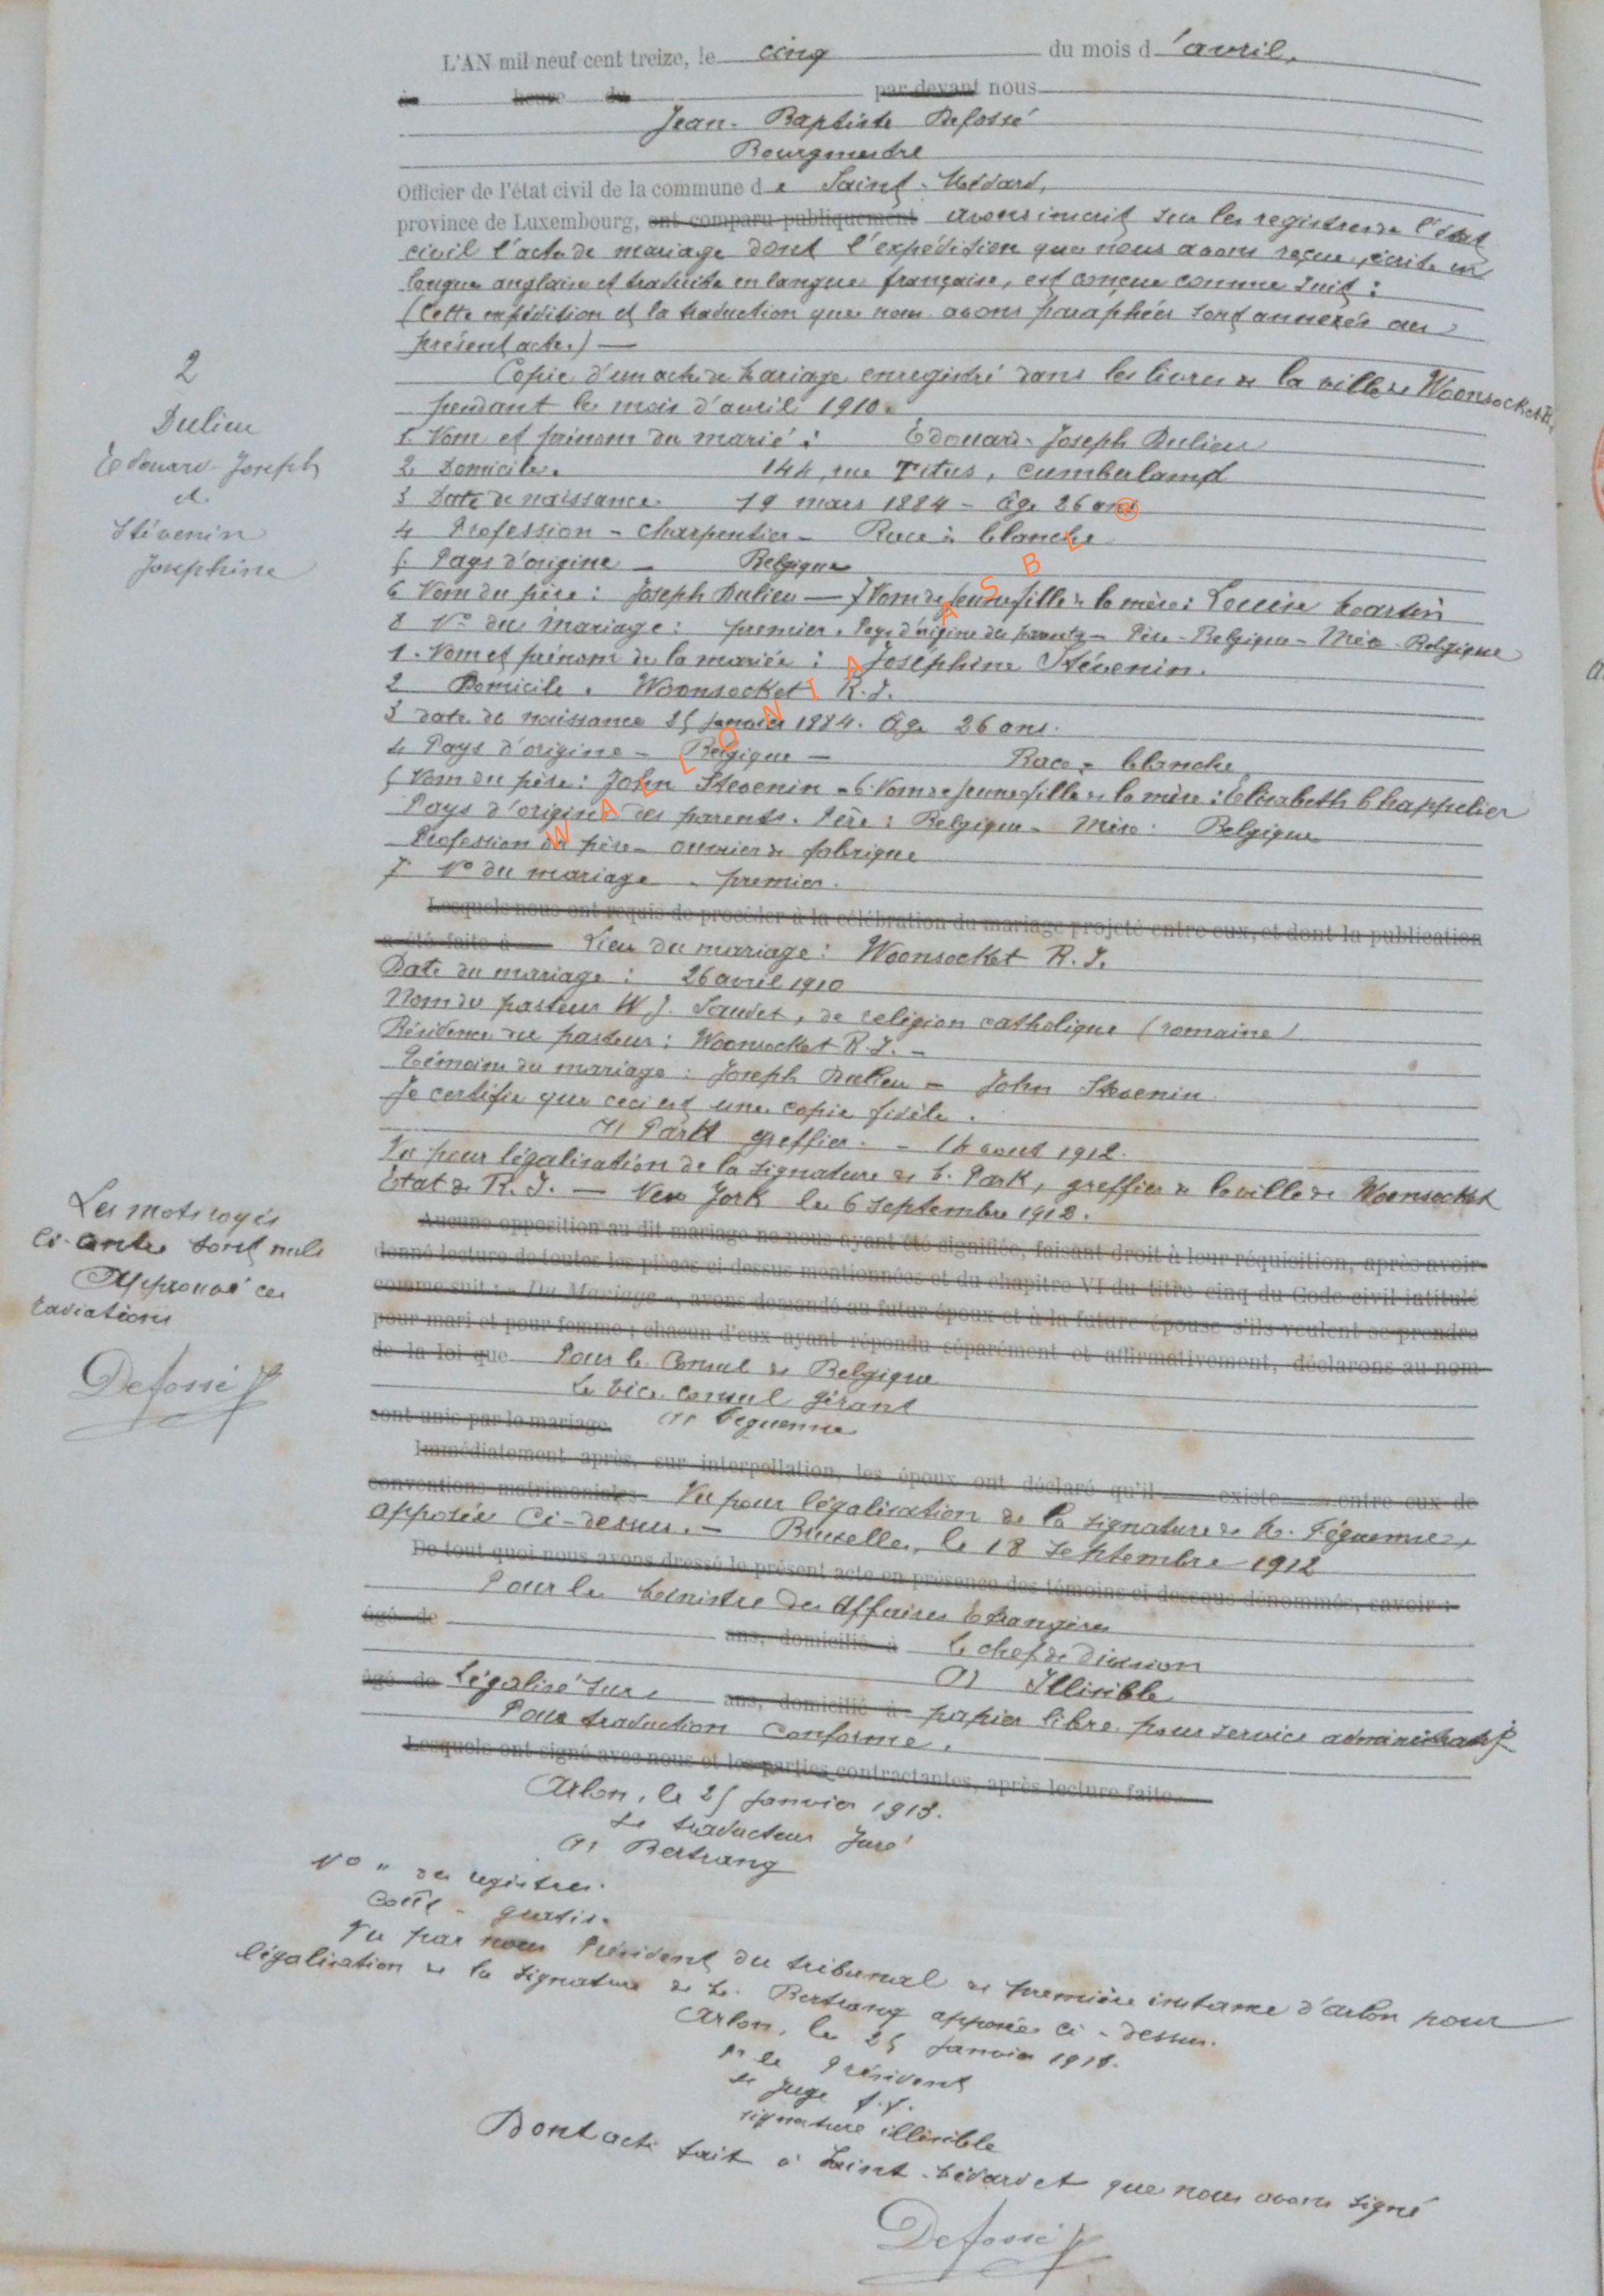 L'AN mil neuf cent treize, le cinq du mois d'avril,
à heure du par devant nous
Jean-Baptiste Defossé
Bourgmestre
Officier de l'état civil de la commune de Saint-Médard,
province de Luxembourg, ont comparu publiquement avons inscrit sur les registres de l'état
civil l'acte de mariage dont l'expédition que nous avons reçue, écrite en
langue anglaise et traduite en langue française, est conçue comme suit :
(Cette expédition et la traduction que nous avons paraphées sont annexées au
présent acte.) —
2
Dulieu
Edouard-Joseph
et
Stévenin
Josephine
Copie d'un acte de Mariage enregistré dans les livres de la ville de Woonsocket R.I.
pendant le mois d'avril 1910.
1. Nom et prénom du marié : Edouard-Joseph Dulieu
2 Domicile. 144, rue Titus, Cumberland
3 Date de naissance. 19 mars 1884 - âge 26 ans
4 Profession - charpentier - Race : blanche
5. Pays d'origine - Belgique
6 Nom du père : Joseph Dulieu — 7 Nom de jeune fille de la mère : Louise Martin
8 No du Mariage : premier. Pays d'origine des parents - Père - Belgique - Mère - Belgique
1. Nom et prénom de la mariée : Joséphine Stévenin.
2 Domicile. Woonsocket R.I.
3 date de naissance 25 janvier 1884. âge 26 ans.
4 Pays d'origine - Belgique - Race - blanche
5 Nom du père : John Stevenin - 6. Nom de jeune fille de la mère : Elisabeth Chappelier
Pays d'origine des parents. Père : Belgique - Mère : Belgique
Profession du père - ouvrier de fabrique
7 No du mariage - premier.
Lesquels nous ont requis de procéder à la célébration du mariage projeté entre eux, et dont la publication
a été faite à Lieu du mariage : Woonsocket R.I.
Date du mariage : 26 avril 1910
Nom du pasteur W.J. , de religion catholique (romaine)
Résidence du pasteur : Woonsocket R.I. -
Témoins du mariage : Joseph Dulieu - John Stevenin.
Je certifie que ceci est une copie fidèle.
(s) Park greffier. - 14 aout 1912.
Vu pour légalisation de la signature de M. Park, greffier de la ville de Woonsocket
Etat de R.I. — New York le 6 septembre 1912.
Les mots rayés
ci-contre sont nuls
Approuvé ces
radiations
Defossé
Aucune opposition au dit mariage ne nous ayant été signifiée, faisant droit à leur réquisition, après avoir
donné lecture de toutes les pièces ci-dessus mentionnées et du chapitre VI du titre cinq du Code civil intitulé
comme suit : « Du Mariage », avons demandé au futur époux et à la future épouse s'ils veulent se prendre
pour mari et pour femme ; chacun d'eux ayant répondu séparément et affirmativement, déclarons au nom
de la loi que Pour le Consul de Belgique
Le Vice consul gérant
sont unis par le mariage. (s) Feguenne
Immédiatement après, sur interpellation, les époux ont déclaré qu'il existe entre eux de
conventions matrimoniales Vu pour légalisation de la signature de M. Féguenne,
apposée ci-dessus. - Bruxelles, le 18 septembre 1912
De tout quoi nous avons dressé le présent acte en présence des témoins ci-dessous dénommés, savoir :
Pour le Ministre des Affaires Etrangères
âgé de ans, domicilié à Le chef de Division
(s) Illisible
âgé de Légalisé sur ans, domicilié à papier libre pour service administratif
Pour traduction conforme.
Lesquels ont signé avec nous et les parties contractantes, après lecture faite.
Arlon, le 25 janvier 1913.
Le traducteur Juré
(s) Bertrang
No " du registre.
Coût - gratis.
Vu par nous Président du tribunal de première instance d'Arlon pour
légalisation de la signature de M. Bertrang apposée ci-dessus.
Arlon, le 25 janvier 1913.
Pr le Président
Le Juge f.f.
signature illisible
Dont acte fait à Saint-Médard et que nous avons signé
Defossé
WALLONIA ASBL ®